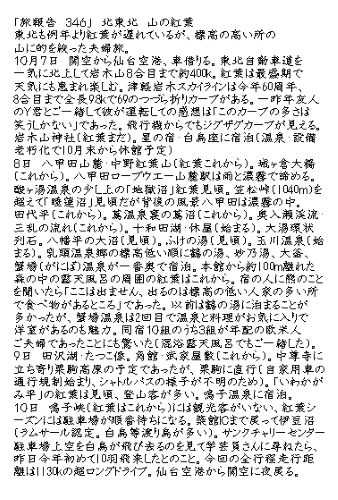 「旅報告 346」 北東北 山の紅葉
東北も例年より紅葉が遅れているが、標高の高い所の
山に的を絞った夫婦旅。
10月7日 関空から仙台空港、車借りる。東北自動車道を
一気に北上して岩木山8合目まで約400k。紅葉は最盛期で
天気にも恵まれ楽しむ。津軽岩木スカイラインは今年60周年、
8合目まで全長9.8kで69のつづら折りカーブがある。一昨年友人
のY君とご一緒して彼が運転しての感想は「このカーブの多さは
笑うしかない」であった。飛行機からでもジグザグカーブが見える。
岩木山神社(紅葉まだ)。星の宿・白鳥座に宿泊(温泉・設備
老朽化で10月末から休館予定)
8日 八甲田山麓・中野紅葉山(紅葉これから)。城ヶ倉大橋
(これから)。八甲田ロープウエー山麓駅は雨と濃霧で諦める。
酸ヶ湯温泉の少し上の「地獄沼」紅葉見頃。笠松峠(1040m)を
超えて「睡蓮沼」見頃だが背後の風景八甲田は濃霧の中。
田代平(これから)。蔦温泉裏の蔦沼(これから)。奥入瀬渓流・
三乱の流れ(これから)。十和田湖・休屋(始まる)。大湯環状
列石。八幡平の大沼(見頃)。ふけの湯(見頃)。玉川温泉(始
まる)。乳頭温泉郷の標高低い順に鶴の湯、妙乃湯、大釜、
蟹場(がにば)温泉が一番奥で宿泊。本館から約100m離れた
森の中の露天風呂の周囲の紅葉はこれから。宿の人に熊のこと
を聞いたら「ここは出ません、出るのは標高の低い人家の多い所
で食べ物があるところ」であった。以前は鶴の湯に泊まることが
多かったが、蟹場温泉は2回目で温泉と料理がお気に入りで
洋室があるのも魅力。同宿10組のうち3組が年配の欧米人
ご夫婦であったことにも驚いた(混浴露天風呂でもご一緒した)。
9日 田沢湖・たつこ像。角館・武家屋敷(これから)。中尊寺に
立ち寄り栗駒高原の予定であったが、栗駒に直行(自家用車の
通行規制始まり、シャトルバスの様子が不明のため)。「いわかが
み平」の紅葉は見頃、登山客が多い。鳴子温泉に宿泊。
10日 鳴子峡(紅葉はこれから)には観光客がいない、紅葉シ
ーズンには駐車場が順番待ちになる。築館ICまで戻って伊豆沼
(ラムサール認定。白鳥等渡り鳥が多い)。サンクチャリーセンター
駐車場上空を白鳥が飛び去るのを見て学芸員さんに尋ねたら、
昨日今年初めて10羽飛来したとのこと。今回の全行程走行距
離は1130kの超ロングドライブ。仙台空港から関空に夜戻る。